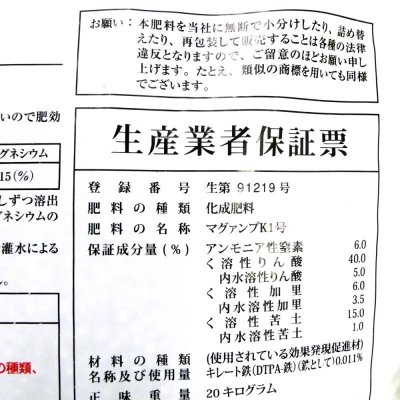 お願い：本肥料を当社に無断で小分けしたり、詰め替
えたり、再包装して販売することは各種の法律
違反となりますので、ご留意のほどお願い申し
上げます。たとえ、類似の商標を用いても同様
でございます。
いので肥効
グネシウム
15(%)
しずつ溶出
グネシウムの
灌水による
ん。
の種類、
生産業者保証票
登録番号 生第 91219号
肥料の種類 化成肥料
肥料の名称 マグァンプK1号
保証成分量(%) アンモニア性窒素 6.0
く溶性りん酸 40.0
内水溶性りん酸 5.0
く溶性加里 6.0
内水溶性加里 3.5
く溶性苦土 15.0
内水溶性苦土 1.0
材料の種類 (使用されている効果発現促進材)
名称及び使用量 キレート鉄(DTPA-鉄)(鉄として)0.011%
正味重量 20キログラム